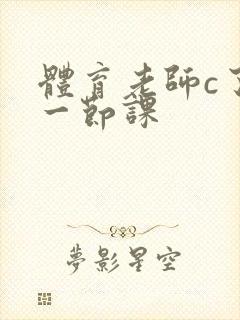 體育老師c了
一節課
夢影星空